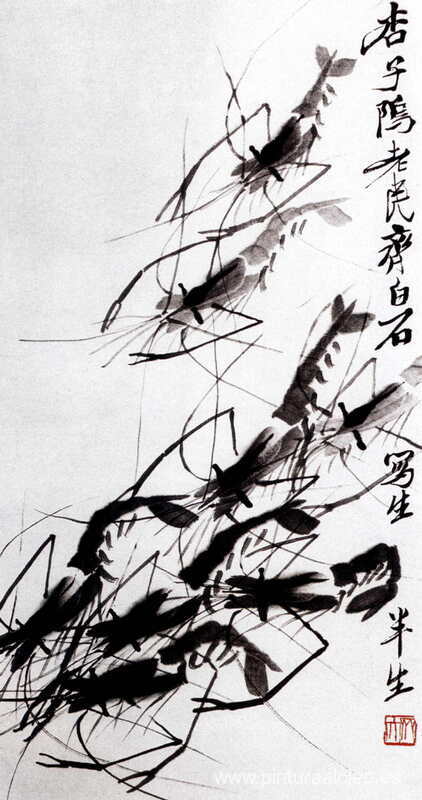 杏子隖老民齊白石
寫生
半生
www.pinturaaloleo.es